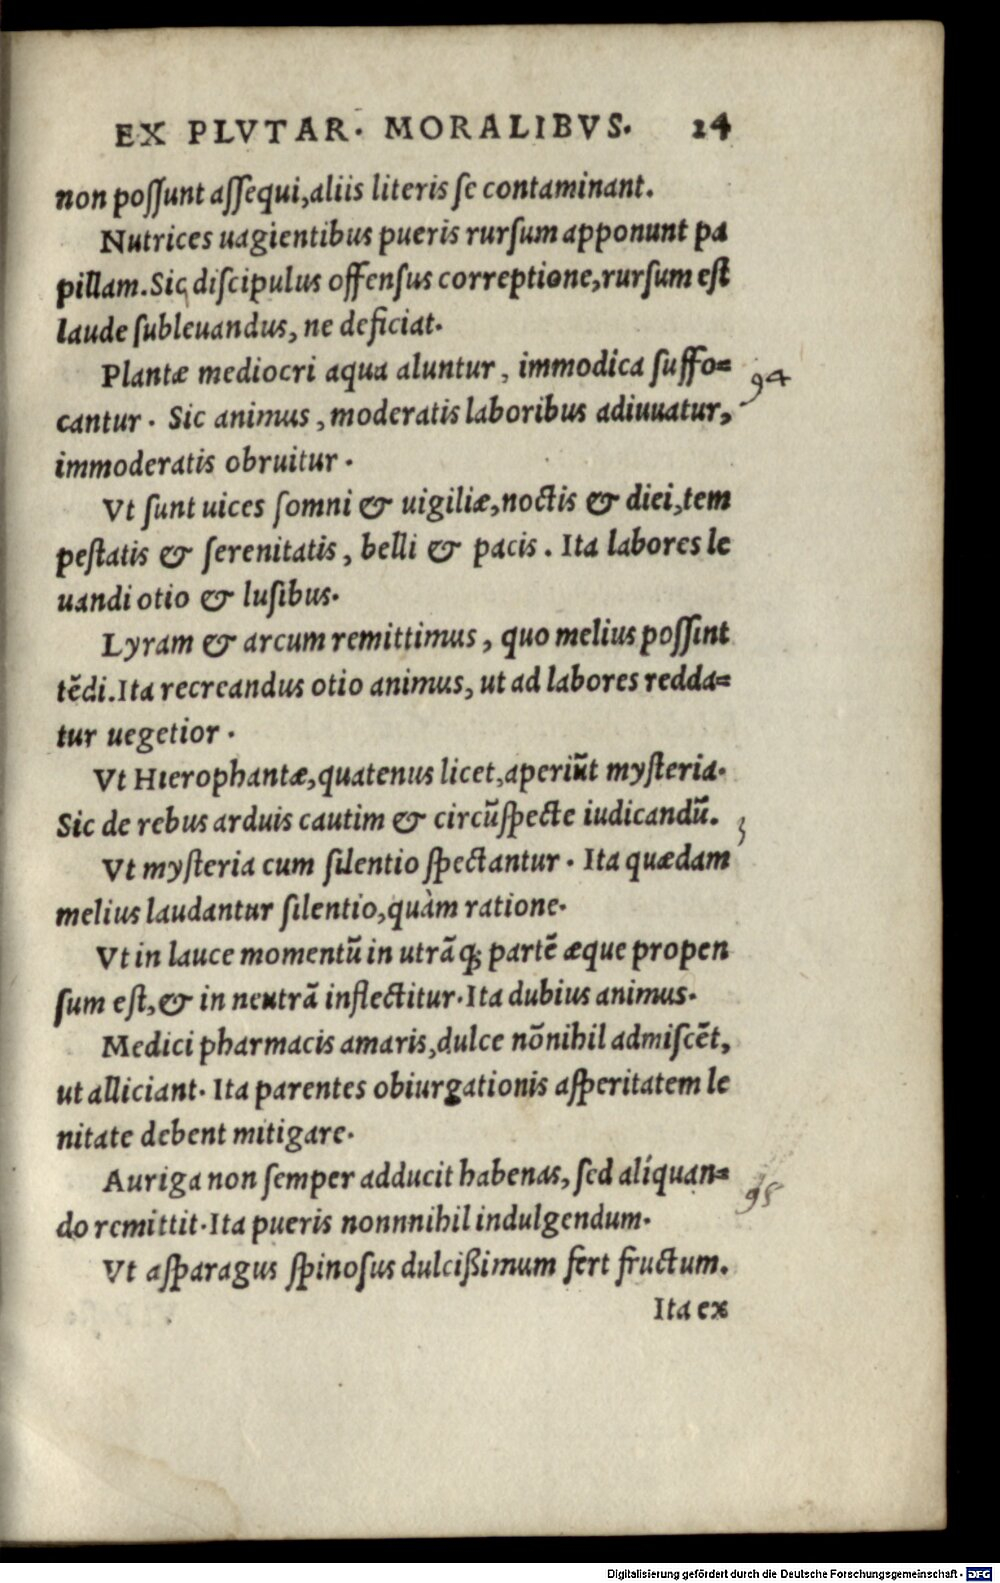 EX PLVTAR. MORALIBVS. 24
non possunt assequi, aliis literis se contaminant.
Nutrices uagientibus pueris rursum apponunt pa
pillam. Sic discipulus offensus correptione, rursum est
laude subleuandus, ne deficiat.
Plantæ mediocri aqua aluntur, immodica suffo=
94
cantur. Sic animus, moderatis laboribus adiuuatur,
immoderatis obruitur.
Vt sunt uices somni & uigiliæ, noctis & diei, tem
pestatis & serenitatis, belli & pacis. Ita labores le
uandi otio & lusibus.
Lyram & arcum remittimus, quo melius possint
tẽdi. Ita recreandus otio animus, ut ad labores redda=
tur uegetior.
Vt Hierophantæ, quatenus licet, aperiũt mysteria.
Sic de rebus arduis cautim & circũspecte iudicandũ.
3
Vt mysteria cum silentio spectantur. Ita quædam
melius laudantur silentio, quàm ratione.
Vt in lauce momentũ in utrãq; partẽ æque propen
sum est, & in neutrã inflectitur. Ita dubius animus.
Medici pharmacis amaris, dulce nõnihil admiscẽt,
ut alliciant. Ita parentes obiurgationis asperitatem le
nitate debent mitigare.
Auriga non semper adducit habenas, sed aliquan=
95
do remittit. Ita pueris nonnnihil indulgendum.
Vt asparagus spinosus dulcißimum fert fructum.
Ita ex
Digitalisierung gefördert durch die Deutsche Forschungsgemeinschaft - DFG